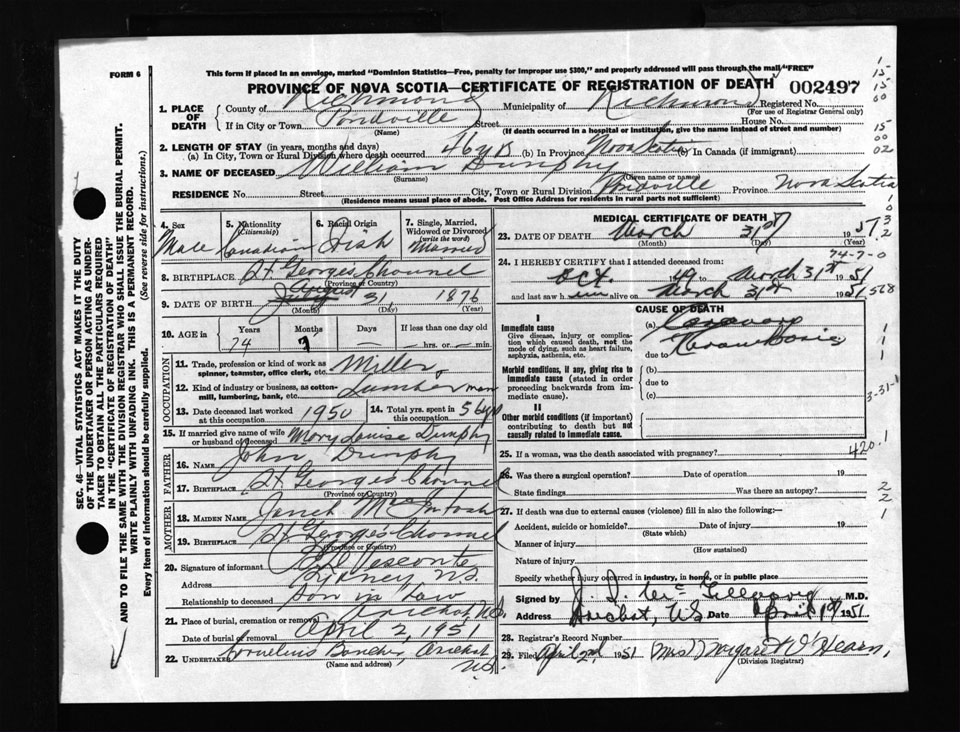 FORM 6
This form if placed in an envelope, marked "Dominion Statistics—Free, penalty for improper use $300," and properly addressed will pass through the mail "FREE"
PROVINCE OF NOVA SCOTIA—CERTIFICATE OF REGISTRATION OF DEATH 002497
1. PLACE OF DEATH County of Richmond Municipality of Richmond Registered No.
(For use of Registrar General only)
If in City or Town Pondville Street House No.
(Name) (If death occurred in a hospital or institution, give the name instead of street and number)
2. LENGTH OF STAY (in years, months and days)
(a) In City, Town or Rural Division where death occurred 46 yrs (b) In Province Nova Scotia (c) In Canada (if immigrant)
3. NAME OF DECEASED William Dumphy
(Surname) (Given name or names)
RESIDENCE No. Street City, Town or Rural Division Pondville Province Nova Scotia
(Residence means usual place of abode. Post Office Address for residents in rural parts not sufficient)
4. Sex Male
5. Nationality (Citizenship) Canadian
6. Racial Origin Irish
7. Single, Married, Widowed or Divorced (write the word) Married
8. BIRTHPLACE St. George's Channel
(Province or Country)
9. DATE OF BIRTH August 31, 1876
(Month) (Day) (Year)
10. AGE in Years 74 Months 7 Days — If less than one day old — hrs. or — min.
OCCUPATION
11. Trade, profession or kind of work as spinner, teamster, office clerk, etc. Miller
12. Kind of industry or business, as cotton-mill, lumbering, bank, etc. Lumber man
13. Date deceased last worked at this occupation 1950
14. Total yrs. spent in this occupation 56 yrs
15. If married give name of wife or husband of deceased Mary Louise Dumphy
FATHER
16. NAME John Dumphy
17. BIRTHPLACE St. George's Channel
(Province or Country)
MOTHER
18. MAIDEN NAME McIntosh
19. BIRTHPLACE St. George's Channel
(Province or Country)
20. Signature of informant LeVesconte
Address Sydney N.S.
Relationship to deceased Son in law
21. Place of burial, cremation or removal Arichat, N.S.
Date of burial or removal April 2, 1951
22. UNDERTAKER Cornelius Arichat N.S.
(Name and address)
MEDICAL CERTIFICATE OF DEATH
23. DATE OF DEATH March 31st 1951
(Month) (Day) (Year)
24. I HEREBY CERTIFY that I attended deceased from:
Oct. 1949 to March 31st 1951
and last saw him alive on March 31st 1951
CAUSE OF DEATH
I
Immediate cause
Give disease, injury or complication which caused death, not the mode of dying, such as heart failure, asphyxia, asthenia, etc.
(a) Coronary
due to Thrombosis
Morbid conditions, if any, giving rise to immediate cause (stated in order proceeding backwards from immediate cause).
(b)
due to
(c)
II
Other morbid conditions (if important) contributing to death but not causally related to immediate cause.
25. If a woman, was the death associated with pregnancy? 420.1
26. Was there a surgical operation? Date of operation 19
State findings Was there an autopsy?
27. If death was due to external causes (violence) fill in also the following:—
Accident, suicide or homicide? Date of injury 19
(State which)
Manner of injury
(How sustained)
Nature of injury
Specify whether injury occurred in industry, in home, or in public place
Signed by M.D.
Address Arichat, N.S. Date April 1951
28. Registrar's Record Number
29. Filed April 2nd 1951 (Mrs) Margaret O'Hearn
(Division Registrar)
SEC. 46—VITAL STATISTICS ACT MAKES IT THE DUTY OF THE UNDERTAKER OR PERSON ACTING AS UNDERTAKER TO OBTAIN ALL THE PARTICULARS REQUIRED IN THE "CERTIFICATE OF REGISTRATION OF DEATH" AND TO FILE THE SAME WITH THE DIVISION REGISTRAR WHO SHALL ISSUE THE BURIAL PERMIT.
WRITE PLAINLY WITH UNFADING INK. THIS IS A PERMANENT RECORD.
Every item of information should be carefully supplied. (See reverse side for instructions.)